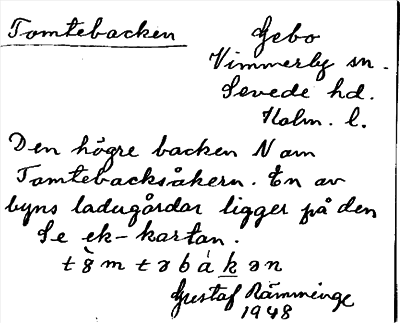 Tomtebacken
Gebo
Vimmerby sn.
Sevede hd.
Kalm. l.
Den högre backen N om
Tomtebacksåkern. En av
byns ladugårdar ligger på den
Se ek-kartan.
Gustaf Rämminge
1948